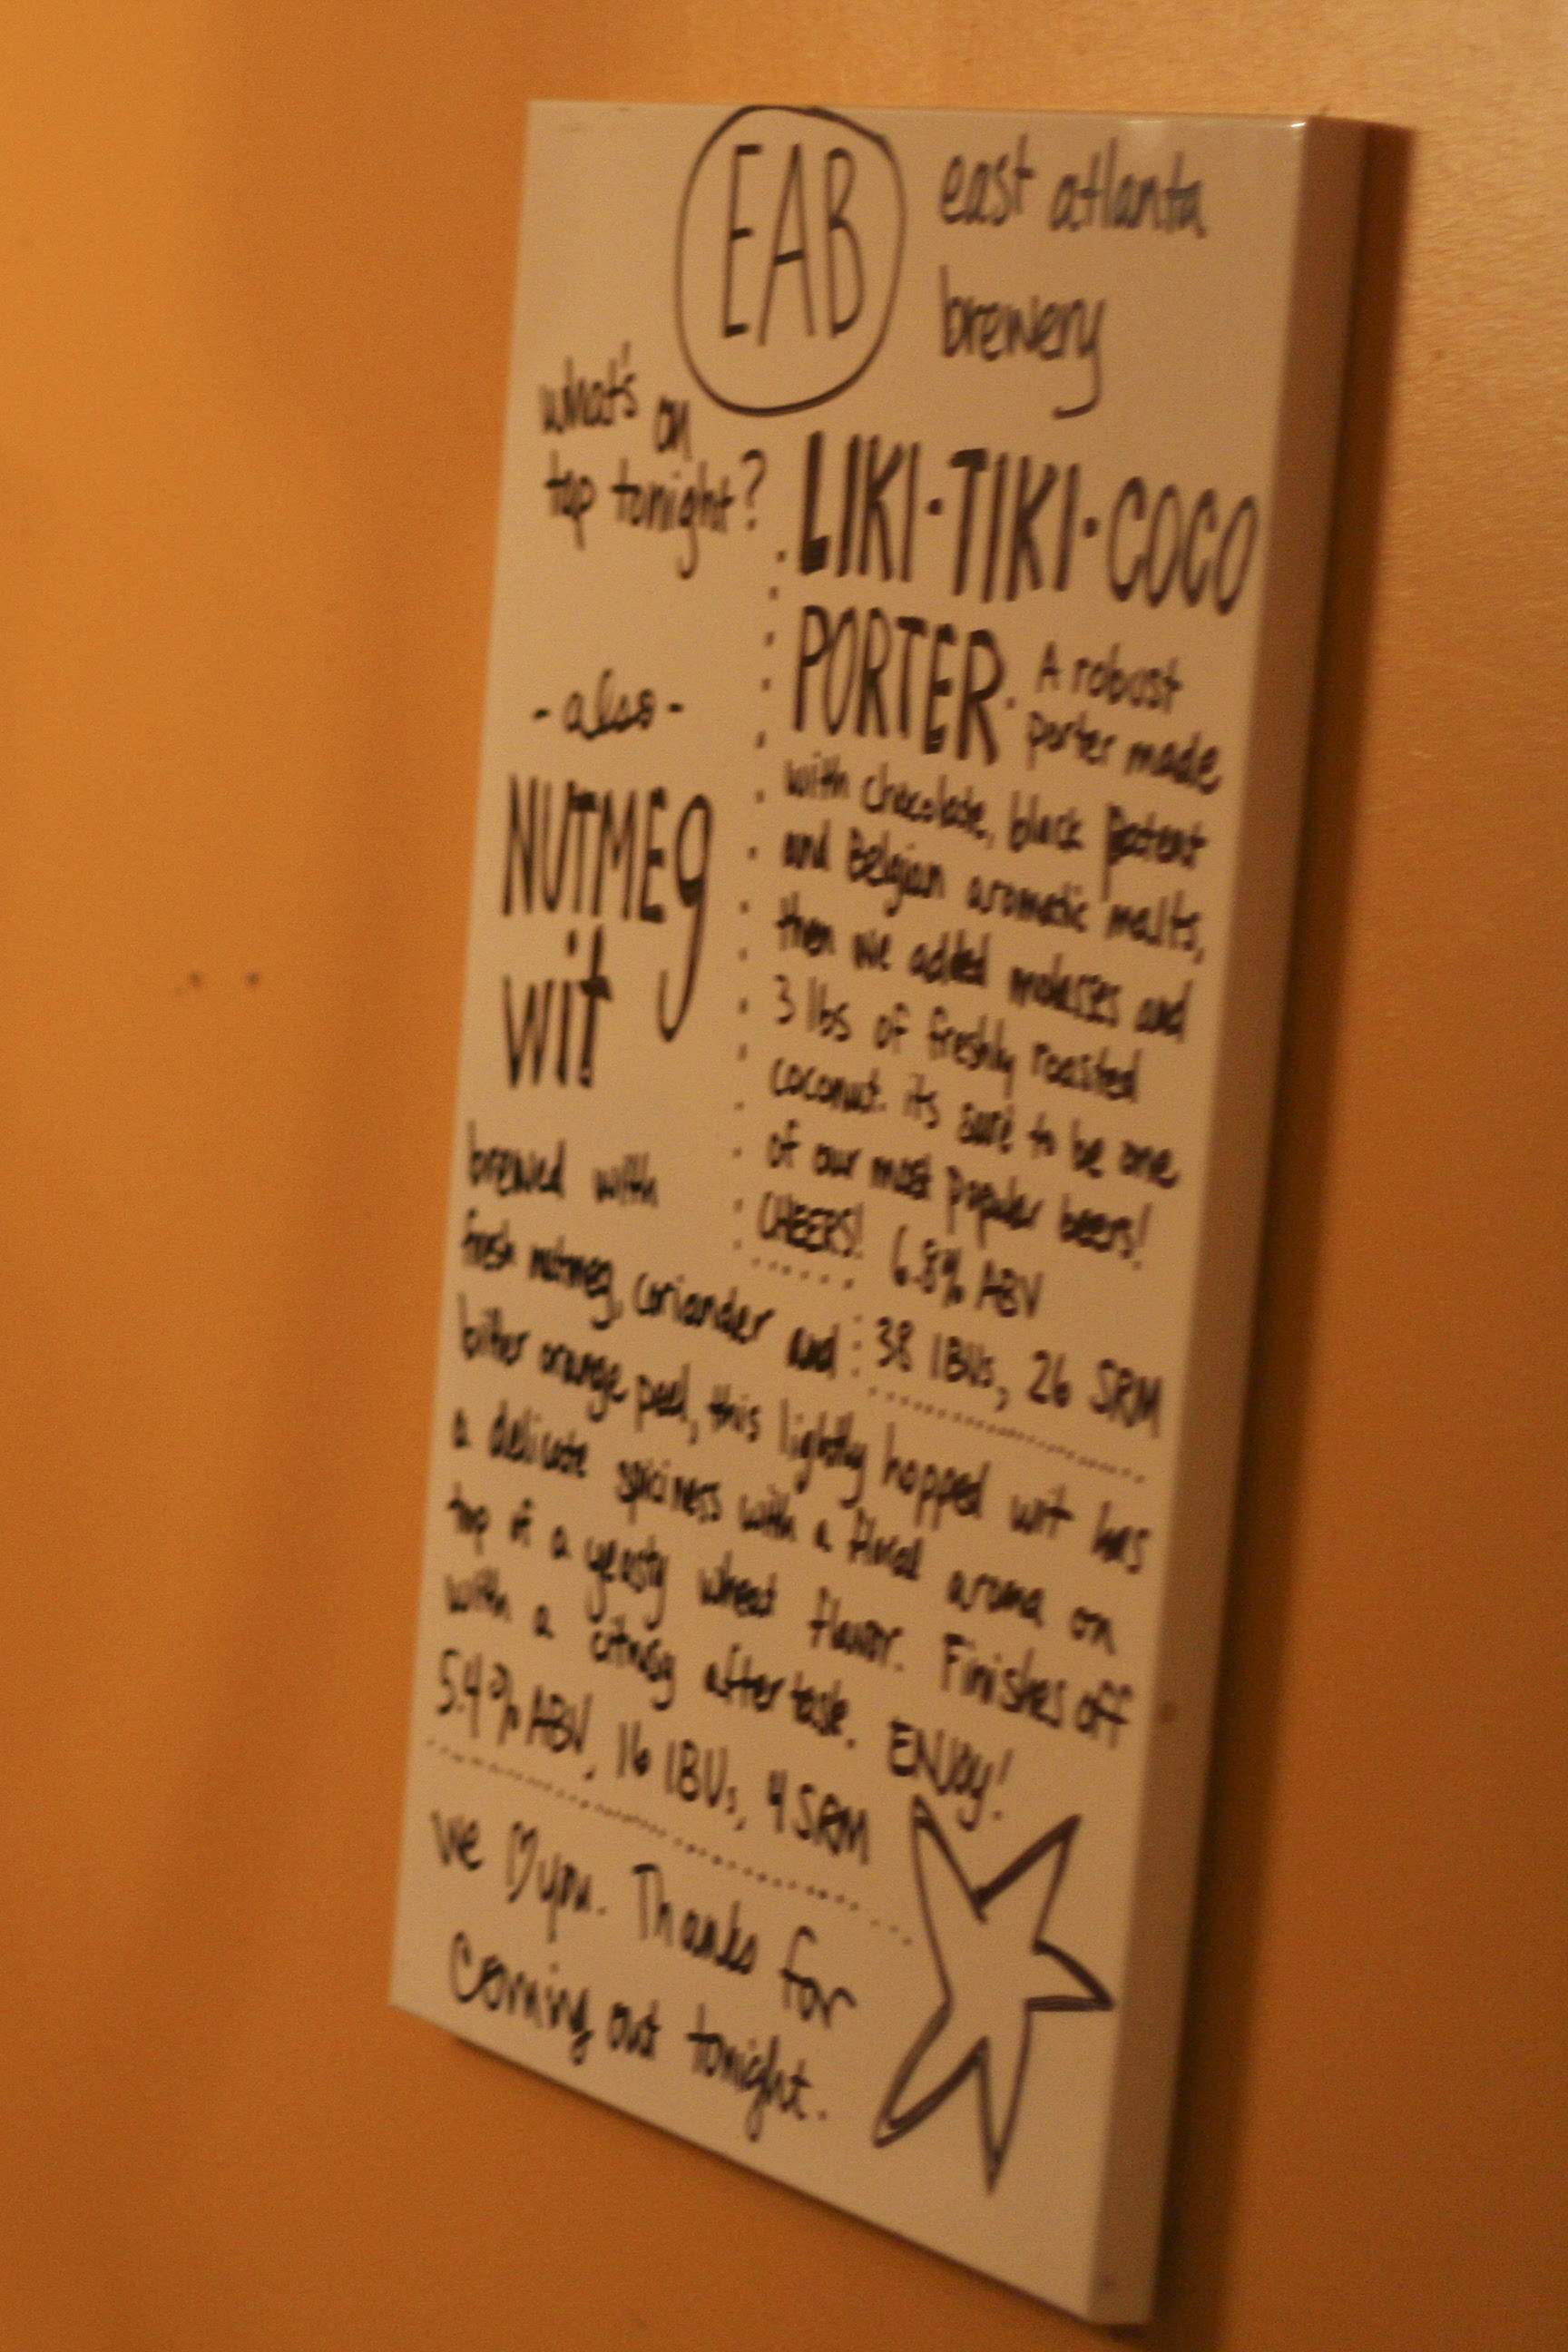 EAB
east atlanta
brewery
what's on
tap tonight?
LIKI·TIKI·COCO
PORTER. A robust
porter made
with chocolate, black patent
and Belgian aromatic malts,
then we added molasses and
3 lbs of freshly roasted
coconut. its sure to be one
of our most popular beers!
CHEERS! 6.8% ABV
38 IBUs, 26 SRM
- also -
NUTMEg
wit
brewed with
fresh nutmeg, coriander and
bitter orange peel, this lightly hopped wit has
a delicate spiciness with a floral aroma on
top of a yeasty wheat flavor. Finishes off
with a citrusy aftertaste. ENJOY!
5.4% ABV, 16 IBUs, 4 SRM
we ♡ you. Thanks for
Coming out tonight.